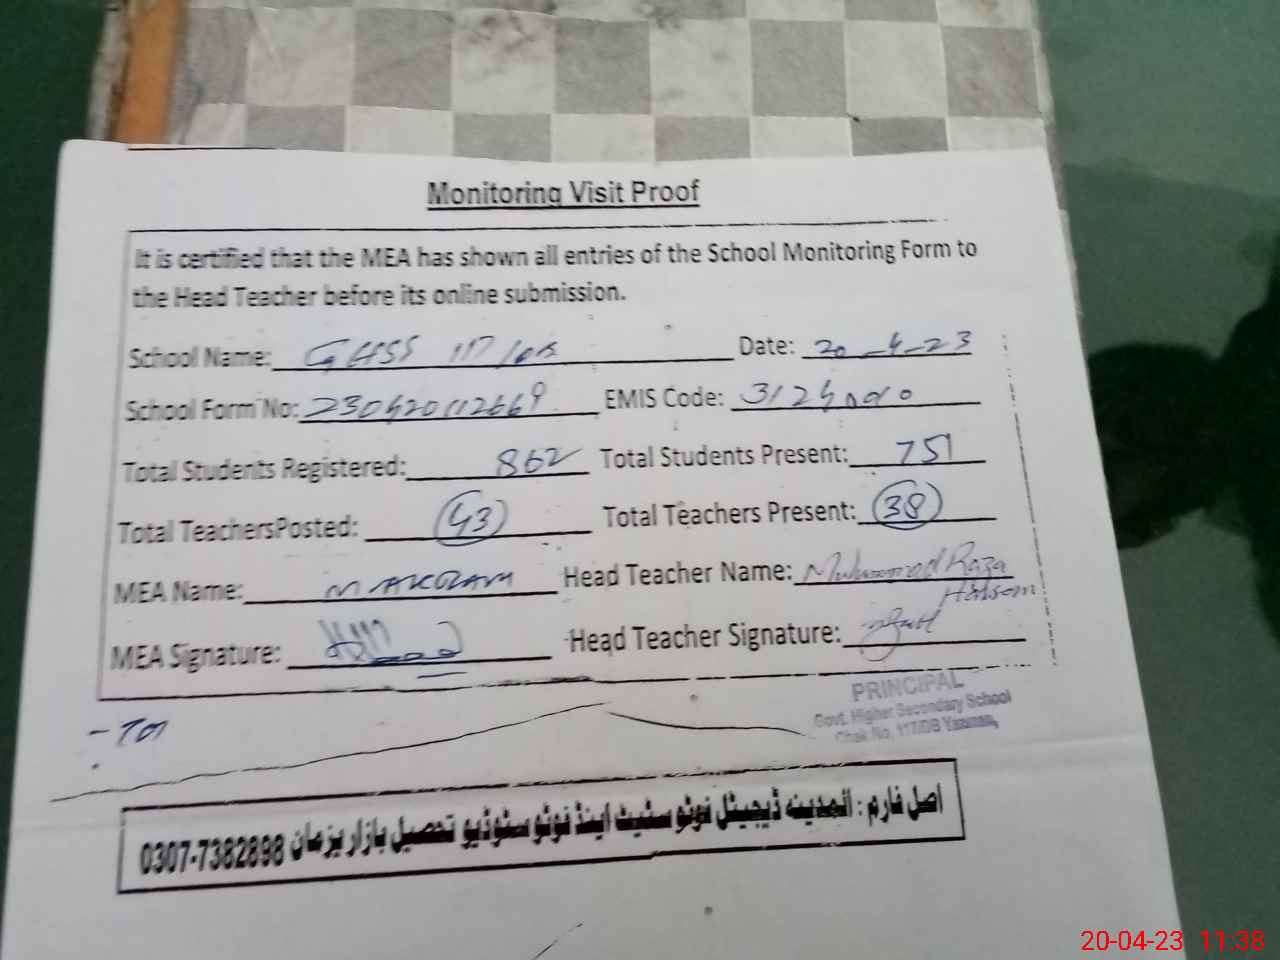 Monitoring Visit Proof
It is certified that the MEA has shown all entries of the School Monitoring Form to
the Head Teacher before its online submission.
School Name: GHSS 117/DB Date: 20-4-23
School Form No: 230420112669 EMIS Code:
Total Students Registered: 862 Total Students Present: 751
Total TeachersPosted: 43 Total Teachers Present: 38
MEA Name: M AKRAM Head Teacher Name: Muhammad Raza
MEA Signature: Head Teacher Signature:
PRINCIPAL
Govt. Higher Secondary School
Chak No, 117/DB Yazman,
اصل فارم : المدینہ ڈیجیٹل فوٹو سٹیٹ اینڈ فوٹو سٹوڈیو تحصیل بازار یزمان 0307-7382898
20-04-23 11:38